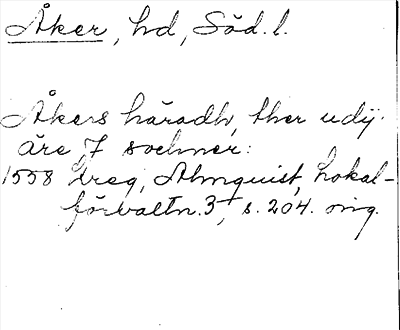 Åker, hd, Söd. l.
Åkers häradh, ther udij
äre 7 sochner:
1558 breg, Almquist, Lokal-
förvaltn. 3, s. 204. orig.